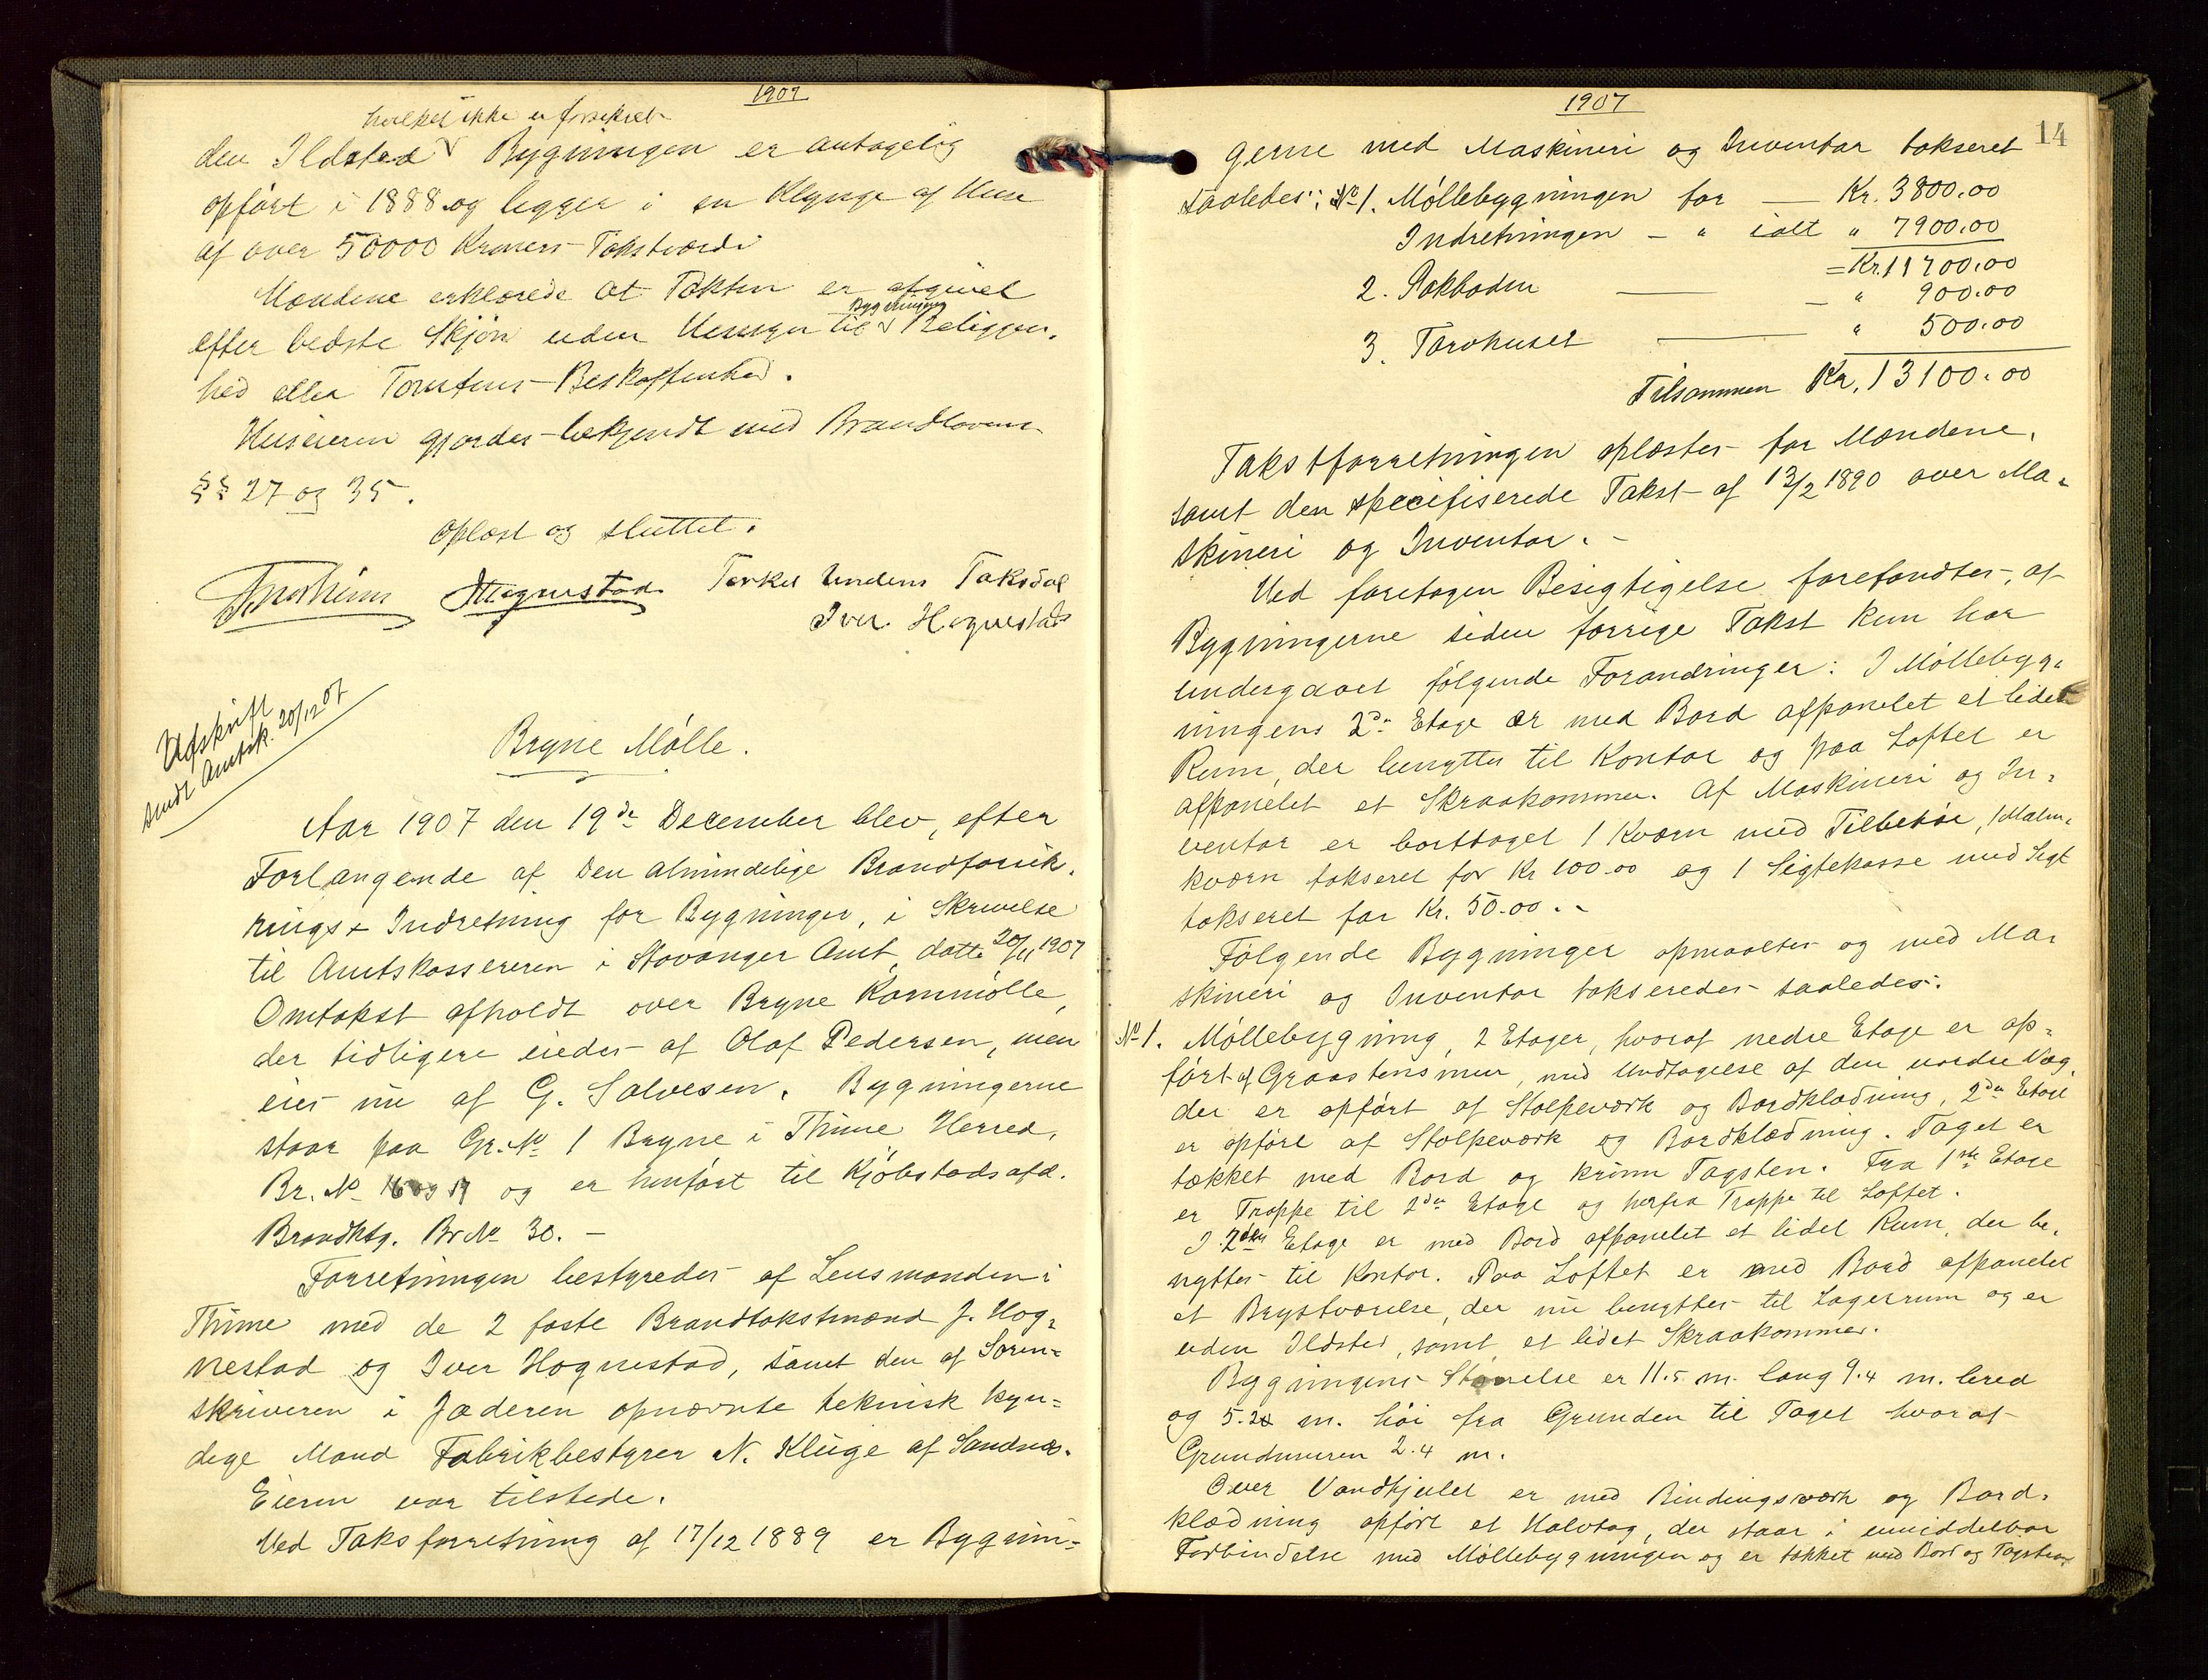 1907
hvilket ikke er forsikret
den Ildsted v Bygningen er antagelig
opført i 1888 og ligger i en Klynge af Huse
af over 50000 Kroners Takstværdi
Mændene erklærede at Taksten er afgivet
Bygningens
efter bedste Skjøn uden Hensyn til v Beliggen-
hed eller Tomtens Beskaffenhed.
Huseieren gjordes bekjendt med Brandlovens
§§ 27 og 35.
Oplæst og sluttet.
Hognestad Torkel Undem Taksdal
Iver Hognestad
Udskrift
sendt Amtsk. 20/12 07
Bryne Mølle.
Aar 1907 den 19de December blev, efter
Forlangende af Den almindelige Brandforsik-
rings- Indretning for Bygninger, i Skrivelse
til Amtskassereren i Stavanger Amt, datt. 20/11 1907
Omtakst afholdt over Bryne Kornmølle,
der tidligere eiedes af Olaf Pedersen, men
eies nu af G. Salvesen. Bygningerne
staar paa Gr. No 1 Bryne i Thime Herred,
Br. No 16 og 17 og er henført til Kjøbstadsafd.
Brandktg. Br No 30. -
Forretningen bestyredes af Lensmanden i
Thime med de 2 faste Brandtakstmænd J. Hog-
nestad og Iver Hognestad, samt den af Soren-
skriveren i Jæderen opnævnte teknisk kyn-
dige Mand Fabrikbestyrer N. Kluge af Sandnes.
Eieren var tilstede.
Ved Taksforretning af 17/12 1889 er Bygnin-
1907
14
gerne med Maskineri og Inventar takseret
saaledes: No 1. Møllebygningen for — Kr. 3800.00
Indretningen - " ialt " 7900.00
= Kr. 11700.00
2. Sakboden — — " 900.00
3. Torvhuset — " 500.00
Tilsammen Kr. 13100.00
Takstforretningen oplæstes for Mændene,
samt den specifiserede Takst af 13/2 1890 over Ma-
skineri og Inventar. -
Ved foretagen Besigtigelse forefandtes, at
Bygningerne siden forrige Takst kun har
undergaaet følgende Forandringer: I Møllebyg-
ningens 2den Etage er med Bord afpanelet et lidet
Rum, der benyttes til Kontor og paa Loftet er
afpanelet et Skraakammer. Af Maskineri og In-
ventar er borttaget 1 Kværn med Tilbehør, 1 Malm-
kværn takseret for Kr 100.00 og 1 Sigtekasse med Sigt
takseret for Kr. 50.00. -
Følgende Bygninger opmaaltes og med Ma-
skineri og Inventar takseredes saaledes:
No 1. Møllebygning, 2 Etager, hvoraf nedre Etage er op-
ført af Graastensmur, med Undtagelse af den nordre Væg,
der er opført af Stolpeværk og Bordklædning, 2den Etage
er opført af Stolpeværk og Bordklædning. Taget er
tækket med Bord og krum Tagsten. Fra 1ste Etage
er Trappe til 2den Etage og herfra Trappe til Loftet.
I 2den Etage er med Bord afpanelet et lidet Rum, der be-
nyttes til Kontor. Paa Loftet er med Bord afpanelet
et Brystværelse, der nu benyttes til Lagerrum og er
uden Ildsted, samt et lidet Skraakammer.
Bygningens Størrelse er 11.5 m. lang 9.4 m. bred
og 5.2 m. høi fra Grunden til Taget hvoraf
Grundmuren 2.4 m.
Over Vandhjulet er med Bindingsværk og Bord-
klædning opført et Halvtag, der staar i umiddelbar
Forbindelse med Møllebygningen og er tækket med Bord og Tagsten.